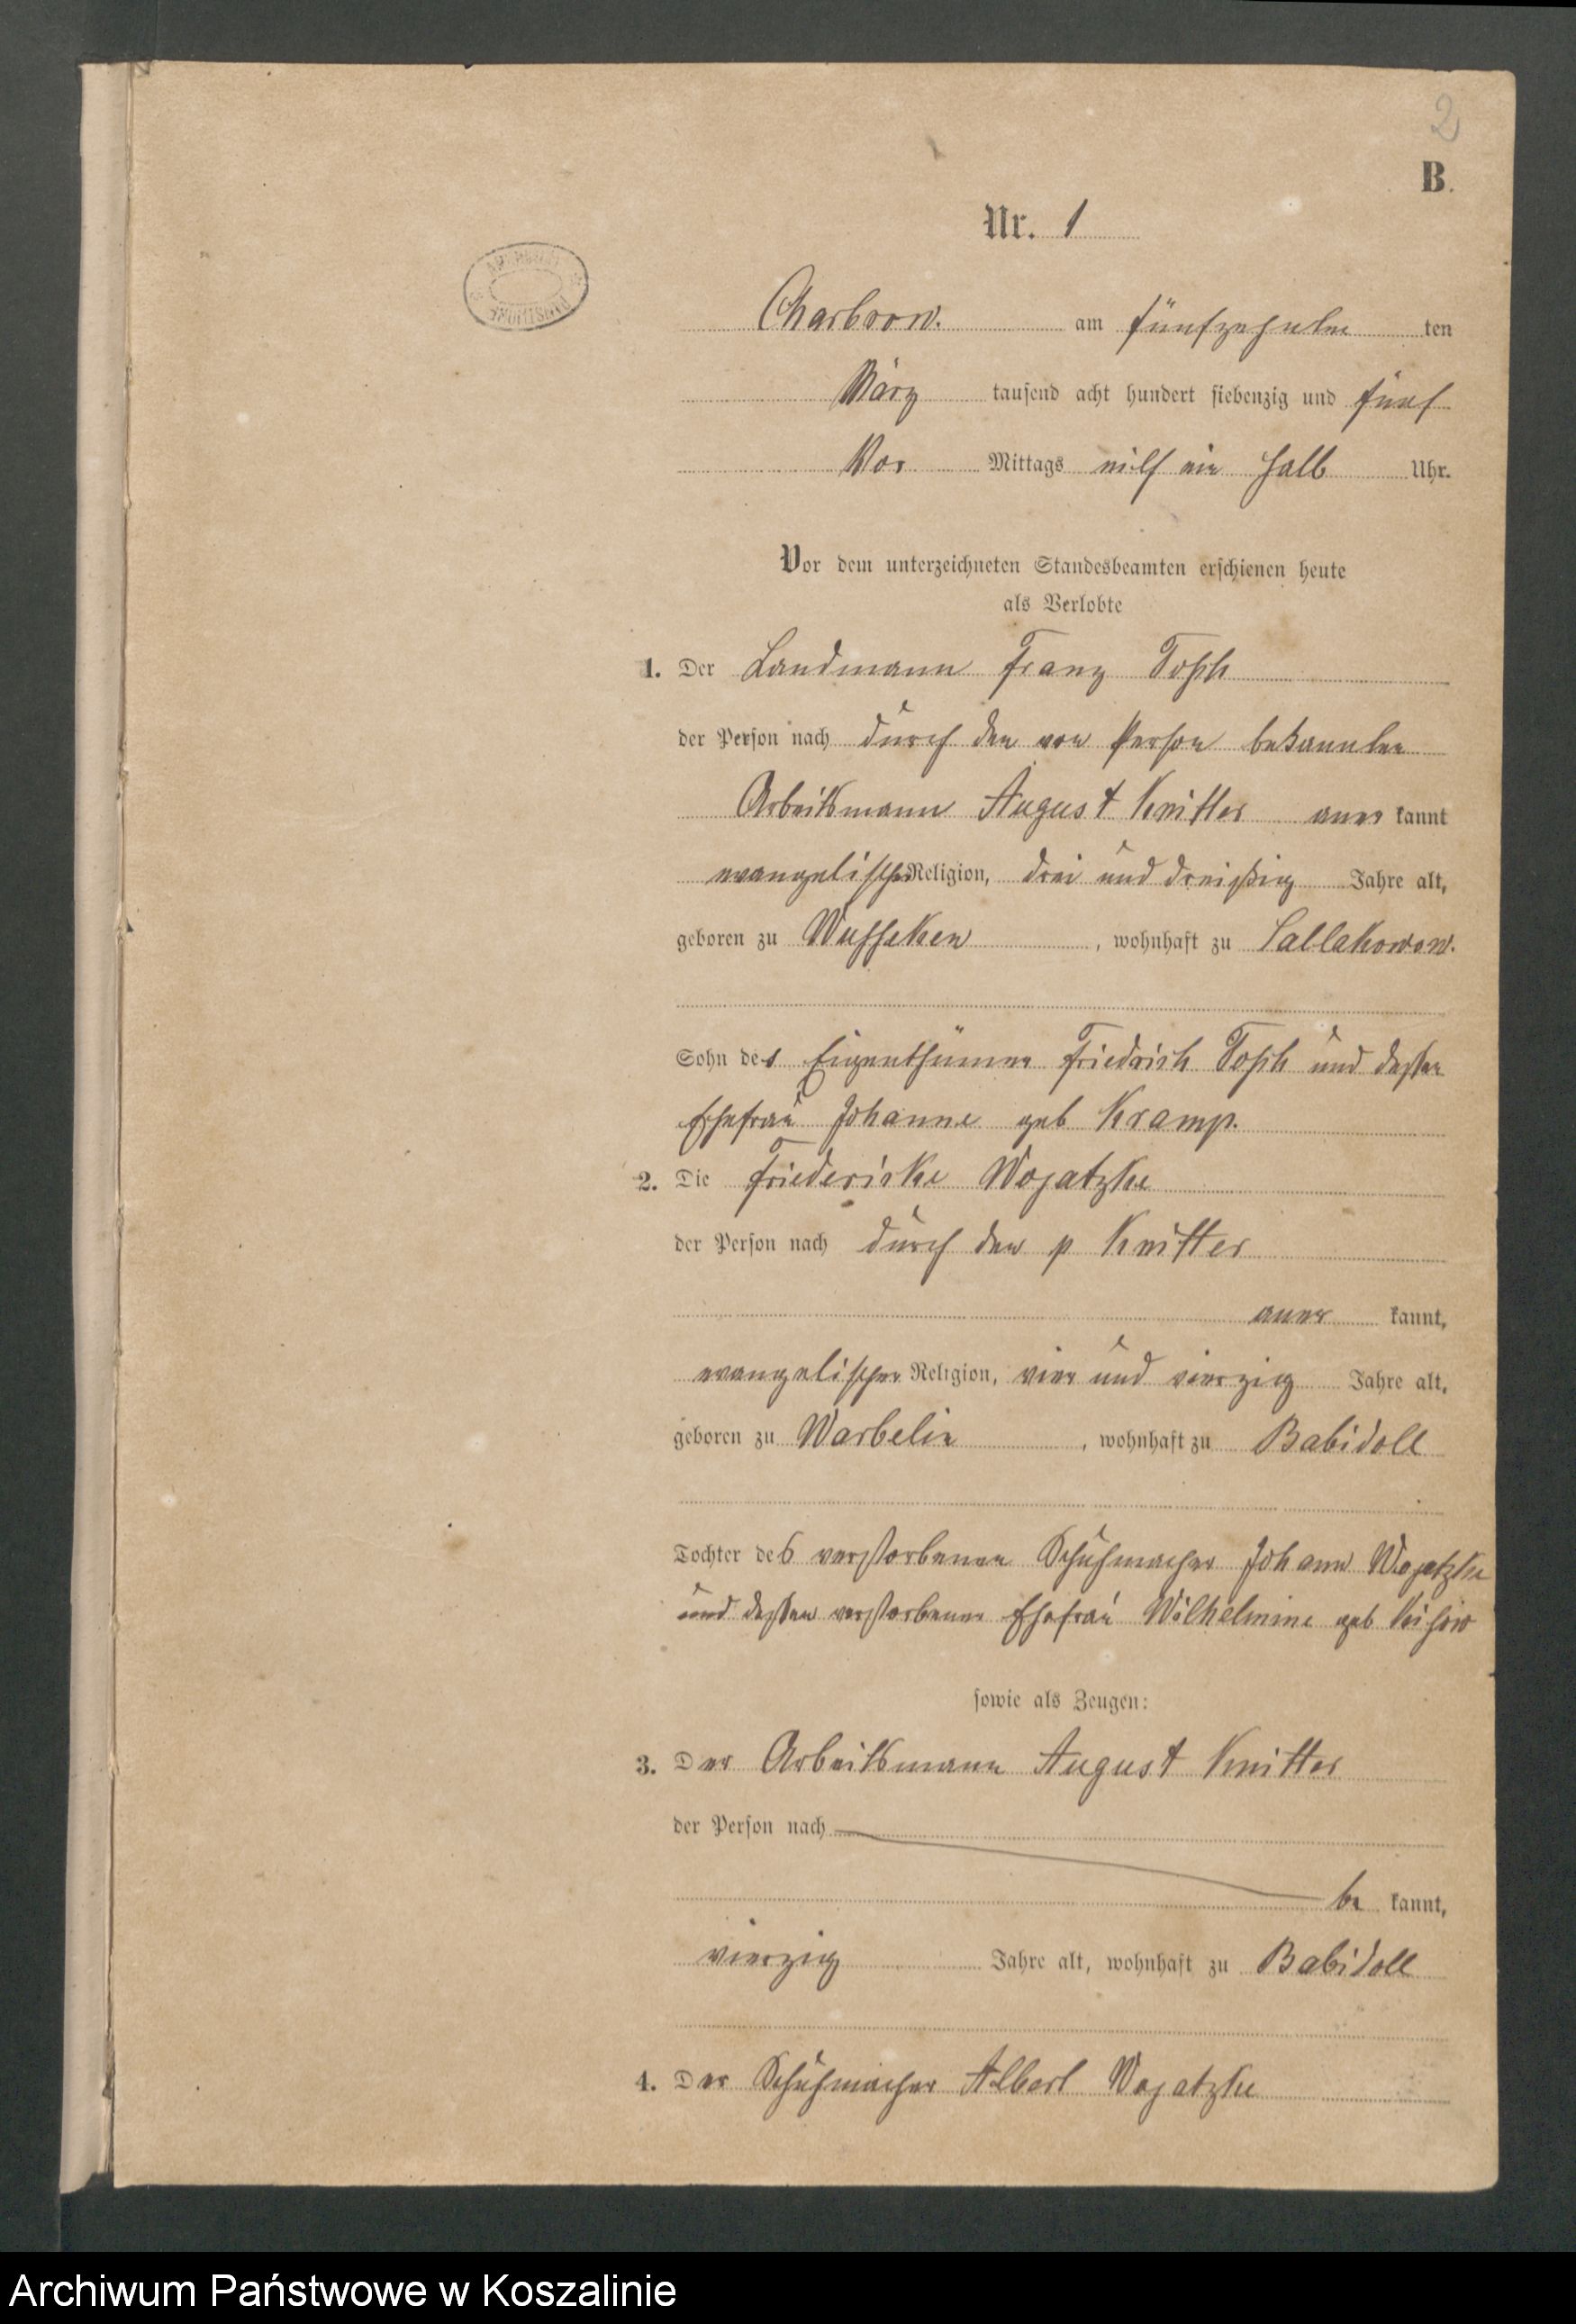 2
B.
Nr. 1
Charbrow. am fünfzehnten ten
März tausend acht hundert siebenzig und fünf
Vor Mittags eilf ein halb Uhr.
Vor dem unterzeichneten Standesbeamten erschienen heute
als Verlobte
1. Der Landmann Franz Toph
der Person nach durch den von Person bekannten
Arbeitsmann August Knitter aner kannt
evangelischer Religion, drei und dreißig Jahre alt,
geboren zu Wusseken, wohnhaft zu Sallakowow.
Sohn des Eigenthümer Friedrich Toph und dessen
Ehefrau Johanne geb Kramp.
2. Die Friedericke Wojatzke
der Person nach durch den p Knitter
aner kannt,
evangelischer Religion, vier und vierzig Jahre alt,
geboren zu Warbelin, wohnhaft zu Babidoll
Tochter des verstorbenen Schuhmacher Johann Wojatzke
und dessen verstorbenen Ehefrau Wilhelmine geb
sowie als Zeugen:
3. Der Arbeitsmann August Knitter
der Person nach
be kannt,
vierzig Jahre alt, wohnhaft zu Babidoll
4. Der Schuhmacher Albert Wojatzke
Archiwum Państwowe w Koszalinie